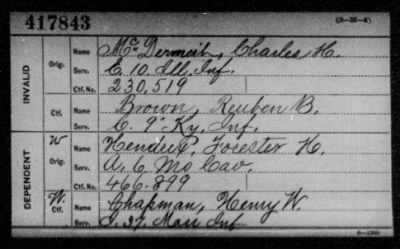 417843
(3-28-4)
INVALID
Orig.
Name
Mc Dermeit, Charles H.
Serv.
C. 10. Ill. Inf.
Ctf. No.
230.519
Ctf.
Name
Brown, Reuben B.
Serv.
C. 9" Ky. Inf.
DEPENDENT
W
Orig.
Name
Forester H.
Serv.
A. 6 Mo Cav.
Ctf. No.
466.899
W.
Ctf.
Name
Chapman, Henry W.
Serv.
37. Mass Inf